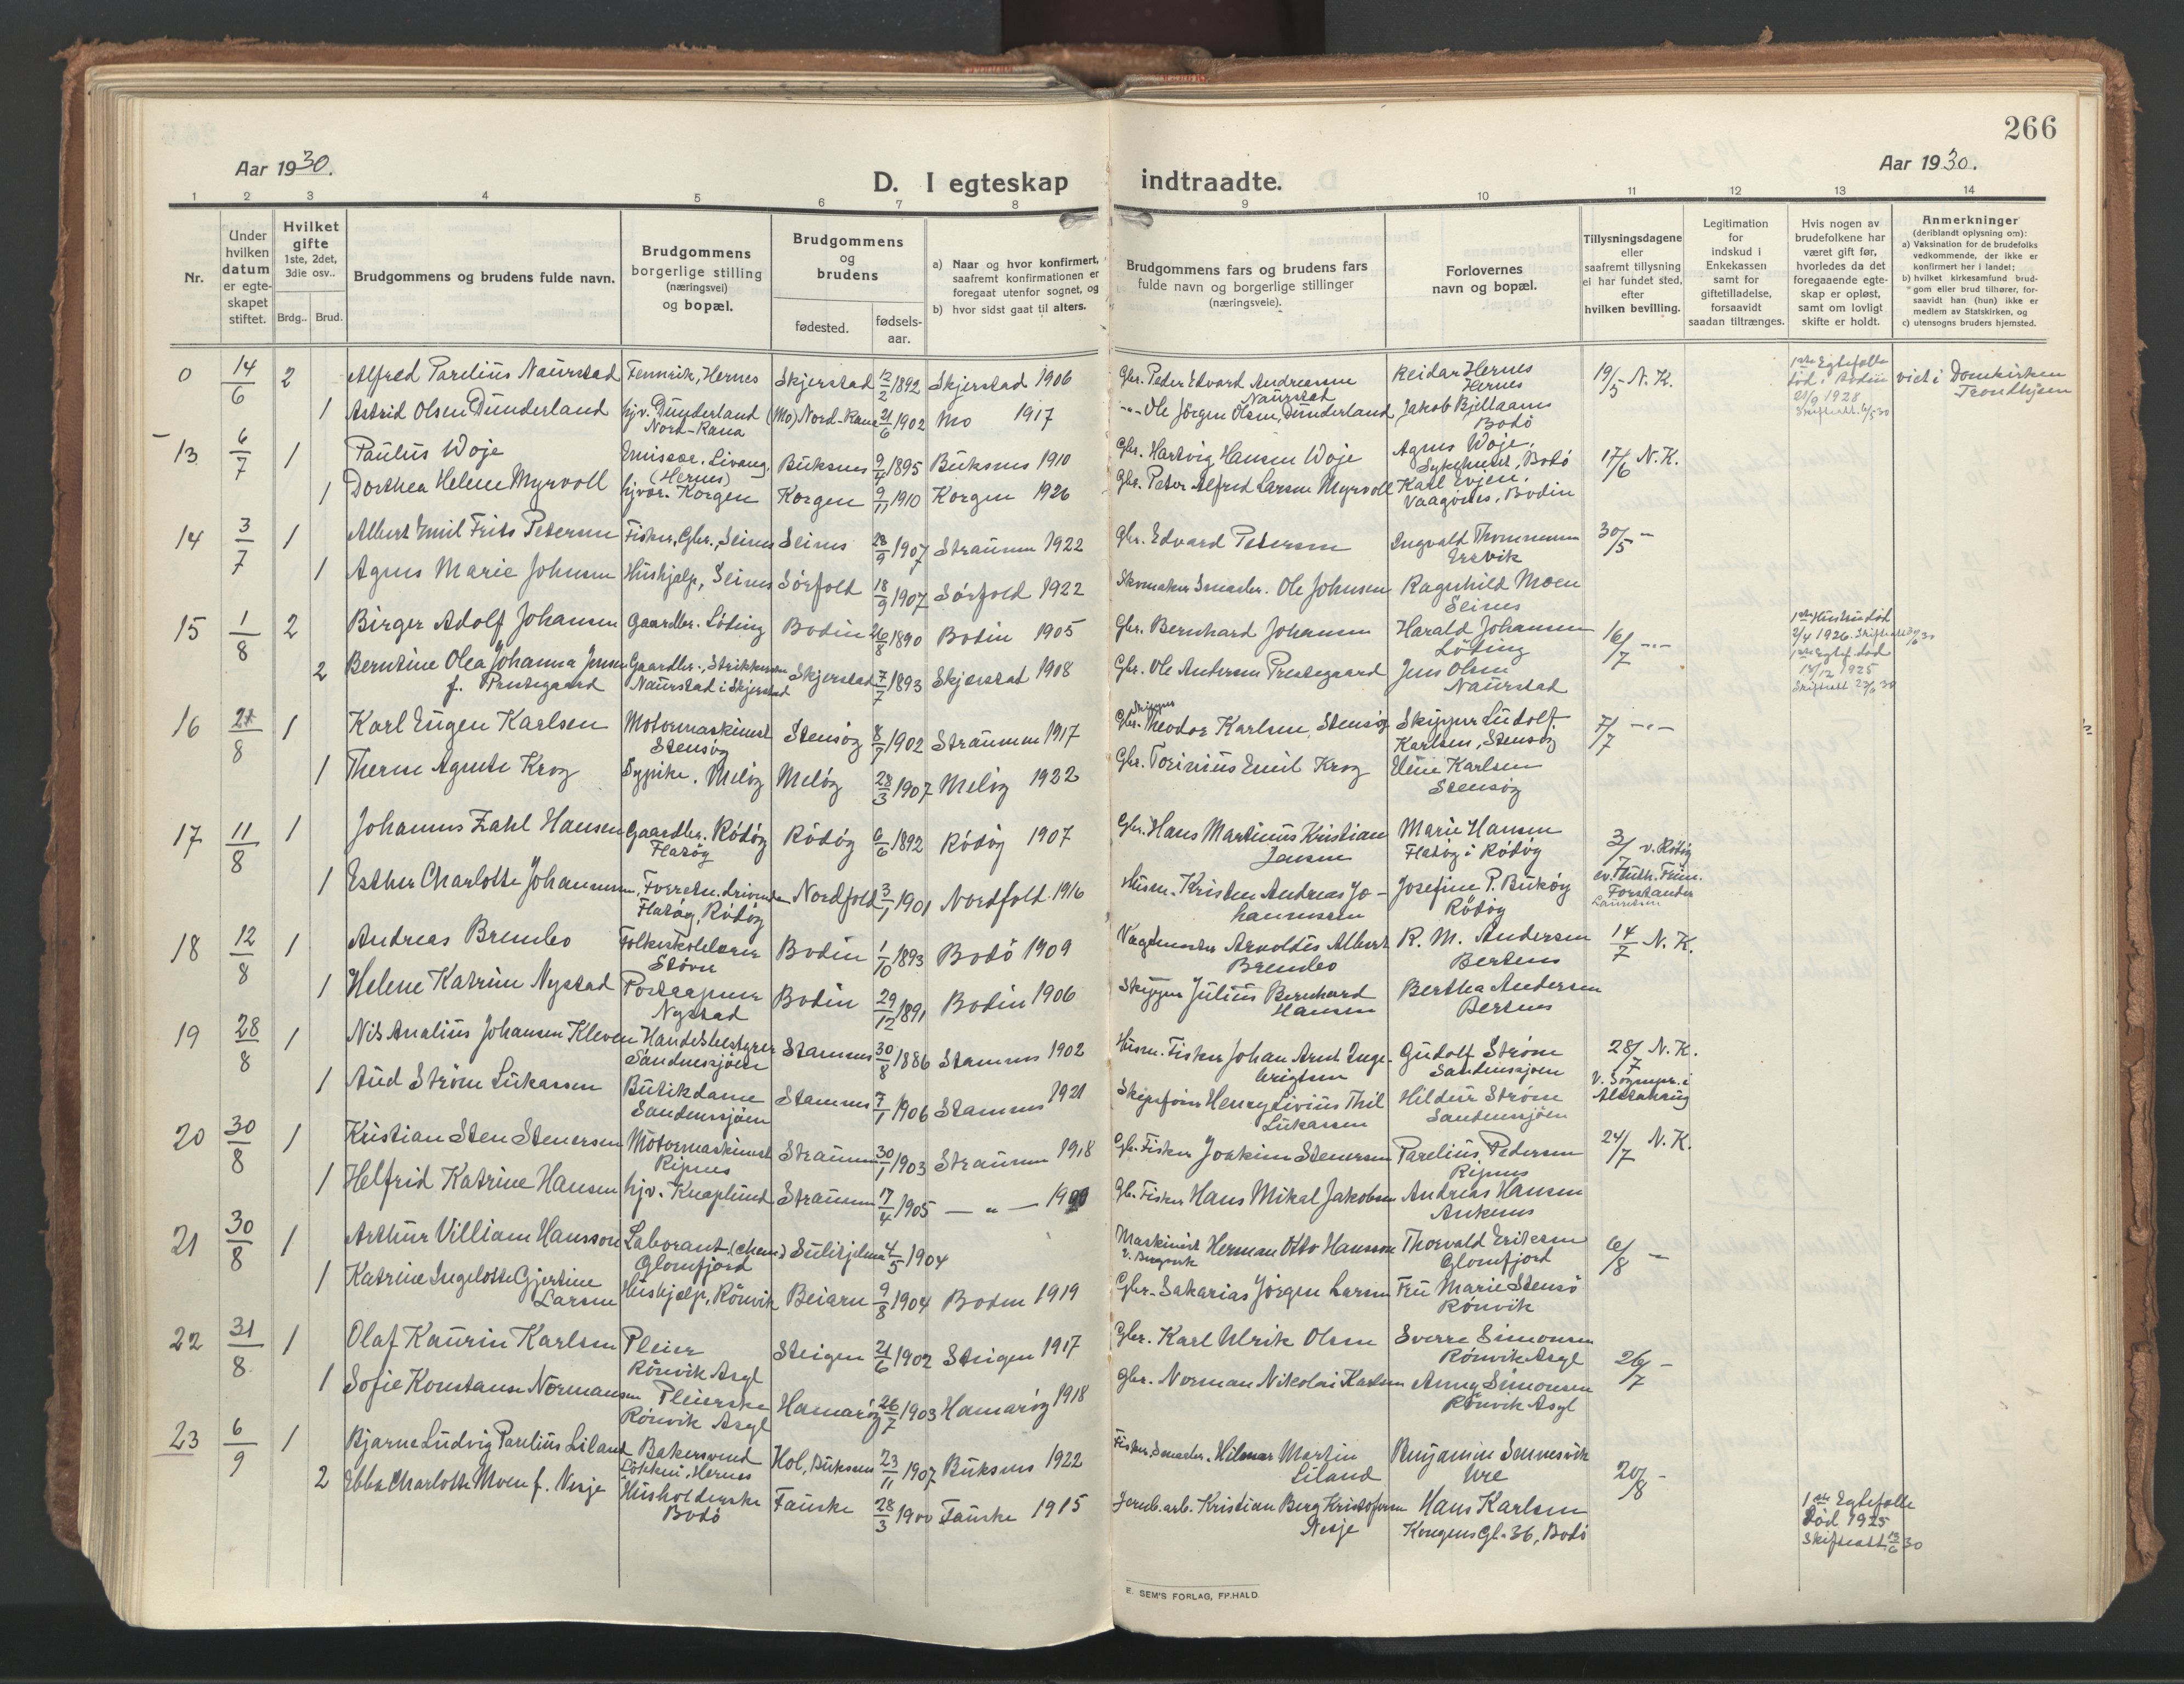 266
Aar 1930.
D. I egteskap indtraadte.
Aar 1930.
1 2 3 4 5 6 7 8 9 10 11 12 13 14
Nr.
Under hvilken datum er egteskapet stiftet.
Hvilket gifte 1ste, 2det, 3die osv..
Brdg.. Brud.
Brudgommens og brudens fulde navn.
Brudgommens borgerlige stilling (næringsvei) og bopæl.
Brudgommens og brudens
fødested.
fødselsaar.
a) Naar og hvor konfirmert, saafremt konfirmationen er foregaat utenfor sognet, og
b) hvor sidst gaat til alters.
Brudgommens fars og brudens fars fulde navn og borgerlige stillinger (næringsveie).
Forlovernes navn og bopæl.
Tillysningsdagene eller saafremt tillysning ei har fundet sted, efter hvilken bevilling.
Legitimation for indskud i Enkekassen samt for giftetilladelse, forsaavidt saadan tiltrænges.
Hvis nogen av brudefolkene har været gift før, hvorledes da det foregaaende egteskap er opløst, samt om lovligt skifte er holdt.
Anmerkninger (deriblandt oplysning om):
a) Vaksination for de brudefolks vedkommende, der ikke er konfirmert her i landet;
b) hvilket kirkesamfund brudgom eller brud tilhører, forsaavidt han (hun) ikke er medlem av Statskirken, og
c) utensogns bruders hjemsted.
0 14/6 2 Alfred Parelius Naurstad Fenrik, Hernes Skjerstad 12/2 1892 Skjerstad 1906 Gbr. Peder Edvard Andreassen Naurstad Reidar Hernes Hernes 19/5 N. K. 1ste Egtefelle død i Bodin 21/9 1928 Skifteatt. 6/5 30 viet i Domkirken Trondhjem
1 Astrid Olsen Dunderland hjv. Dunderland Nord-Rana (Mo) Nord-Rana 21/6 1902 Mo 1917 -"- Ole Jörgen Olsen, Dunderland Jakob Bjellaanes Bodö
13 6/7 1 Paulus Woje Emissær. Livaag. (Hernes) Buksnes 9/4 1895 Buksnes 1910 Gbr. Hartvig Hansen Woje Agnes Woje, Sykehuset, Bodö 17/6 N. K.
1 Dorthea Helene Myrvoll hjvær. Korgen Korgen 9/11 1910 Korgen 1926 Gbr. Peter Alfred Larsen Myrvoll Karl Evjen, Vaagönes, Bodin
14 3/7 1 Albert Emil Frits Petersen Fisker, Gbr., Seines Seines 1907 Straumen 1922 Gbr. Edvard Petersen Ingvald Thommesen Ersvik 30/5 -
1 Agnes Marie Johnsen Hushjelp, Seines Sörfold 18/9 1907 Sörfold 1922 Skomaker Smaabr. Ole Johnsen Ragnhild Moen Seines
15 1/8 2 Birger Adolf Johansen Gaardbr. Löding Bodin 26/8 1890 Bodin 1905 Gbr. Bernhard Johansen Harald Johansen Löding 16/7 -"- 1ste Hustru död 2/4 1926.
2 Berntine Olea Johanna Jensen f. Prestegaard Gaardbr., Naurstad i Skjerstad Skjerstad 7/7 1893 Skjerstad 1908 Gbr. Ole Andersen Prestegaard Jens Olsen Naurstad 1ste Egtef. död 13/12 1925 Skifteatt 23/6 30
16 8 1 Karl Eugen Karlsen Motormaskinist Stensøy Stensøy 8/7 1902 Straumen 1917 Skipper Gbr. Theodor Karlsen, Stensøy Skipper Ludolf Karlsen, Stensøy 7/7 -"-
1 Therese Agnete Krog Sypike. Meløy Meløy 28/3 1907 Meløy 1922 Gbr. Torinius Emil Krog Karlsen Stensøy
17 11/8 1 Johannes Zahl Hansen Gaardbr. Rödöy Flatøy Rödöy 6/6 1892 Rödöy 1907 Gbr. Hans Martinus Kristian Jensen Marie Hansen Flatøy i Rödöy 3/7 v. Rödöy
1 Esther Charlotte Johannessen, Forretn. drivende Flatøy, Rödöy Nordfold 3/1 1901 Nordfold 1916 Husm. Kristen Andreas Johannessen Josefine P. Buköy Rödöy ev. luth. Frim. Forstander Lauritsen
18 12/8 1 Andreas Brembo Folkeskolelærer Stövre Bodin 1/10 1893 Bodö 1909 Vagtmester Arnoldus Albert Brembo R. M. Andersen Bertnes 14/7 N. K.
1 Helene Katrine Nystad Postaapner Nystad Bodin 29/12 1891 Bodin 1906 Skipper Julius Bernhard Hansen Bertha Andersen Bertnes
19 28/8 1 Nils Analius Johansen Kleven Handelsbestyrer Sandnessjöen Stamnes 30/8 1886 Stamnes 1902 Husm. Fisker Johan Arnt Ingebrigtsen Gudolf Ström Sandnessjøen 28/7 N. K. v. Sognepr. i Alstahaug
1 Aud Ström Lukassen Butikdame Sandnessjöen Stamnes 7/1 1906 Stamnes 1921 Skipsfører Henry Livius Thil Lukassen Hildur Ström Sandnessjöen
20 30/8 1 Kristian Sten Stenersen Motormaskinist Ripnes Straumen 30/1 1903 Straumen 1918 Gb. Fisker Joakim Stenersen Parelius Pedersen Ripnes 24/7 N. K.
1 Helfrid Katrine Hansen hjv. Knaplund Straumen 17/4 1905 — " — Gb. Fisker Hans Mikal Jakobsen Andreas Hansen Ankenes
21 30/8 1 Arthur Villiam Hansson Laborant (chem.) Glomfjord Sulitjelma 4/5 1904 Maskinist v. Bergverk Herman Otto Hansson Thorvald Eriksen Glomfjord 6/8 -
1 Katrine Ingelotte Gjertine Larsen Hushjelp, Rönvik Beiarn 9/8 1904 Bodin 1919 Gbr. Sakarias Jörgen Larsen Fru Marie Stensö Rönvik
22 31/8 1 Olaf Kaurin Karlsen Pleier Rönvik Asyl Steigen 21/6 1902 Steigen 1917 Gbr. Karl Ulrik Olsen Sverre Simonsen Rönvik Asyl 26/7 -
1 Sofie Konstanse Normansen Pleierske Rönvik Asyl Hamaröy 26/7 1903 Hamaröy 1918 Gbr. Norman Nikolai Karlsen Anny Simonsen Rönvik Asyl
23 6/9 1 Bjarne Ludvig Parelius Liland Bakersvend Lökkni, Hernes Hol, Buksnes 23/11 1907 Buksnes 1922 Fisker, Smaabr. Hilmar Martin Liland Benjamin Sennesvik Ure 20/8 -
2 Ebba Charlotte Moen f. Nesje Husholderske Bodö Fauske 28/3 1900 Fauske 1915 Jernb. arb. Kristian Berg Kristofersen Nesje Hans Karlsen Kongens Gt. 36, Bodö 1ste Egtefelle död 1925 Skifteatt. 13/6 30
E. SEM'S FORLAG, FR.HALD